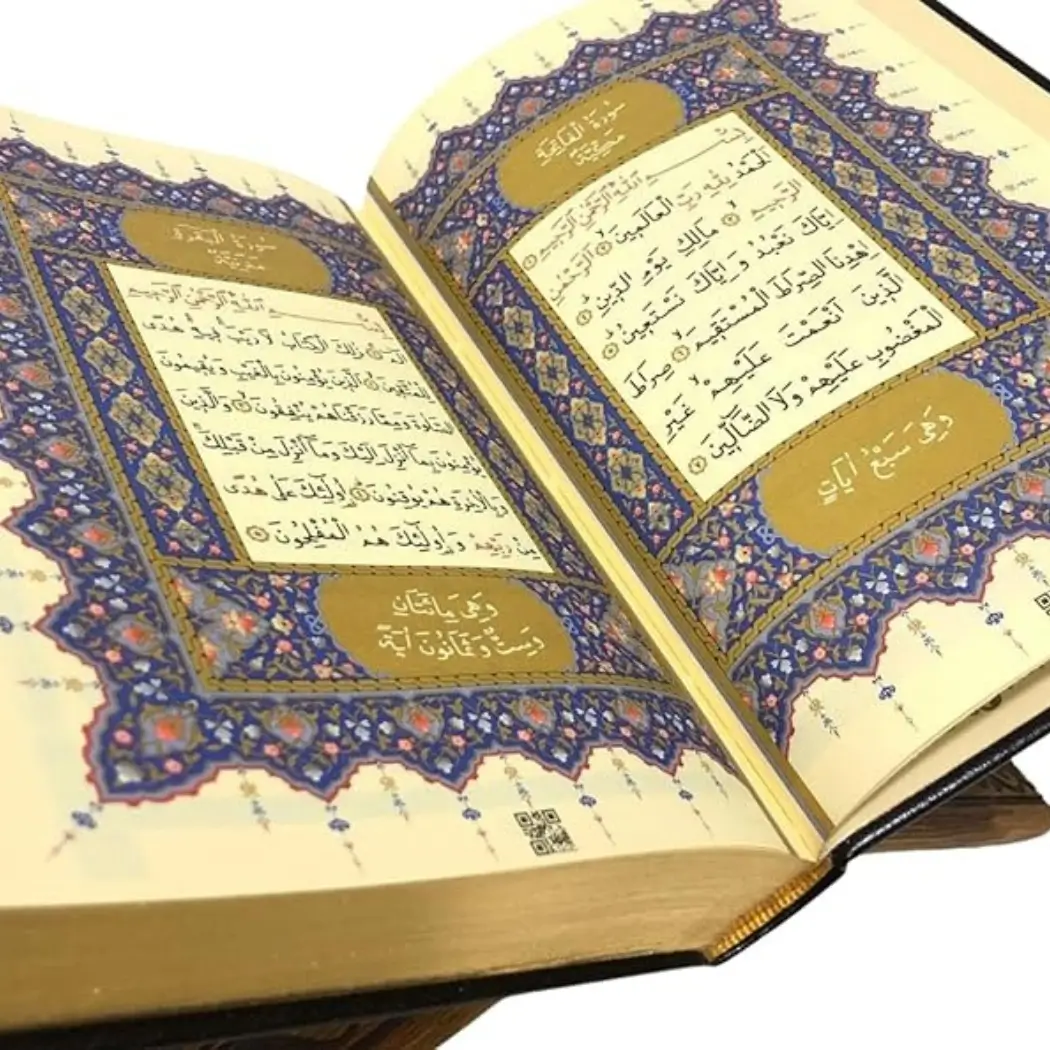 سُورَةُ الْفَاتِحَةِ
مَكِّيَّةٌ
بِسْمِ اللّٰهِ الرَّحْمٰنِ الرَّحِيمِ ١
اَلْحَمْدُ لِلّٰهِ رَبِّ الْعَالَمِينَ ٢ اَلرَّحْمٰنِ
الرَّحِيمِ ٣ مَالِكِ يَوْمِ الدِّينِ ٤
اِيَّاكَ نَعْبُدُ وَاِيَّاكَ نَسْتَعِينُ ٥
اِهْدِنَا الصِّرَاطَ الْمُسْتَقِيمَ ٦ صِرَاطَ
الَّذِينَ اَنْعَمْتَ عَلَيْهِمْ غَيْرِ
الْمَغْضُوبِ عَلَيْهِمْ وَلَا الضَّالِّينَ ٧
وَهِيَ سَبْعُ اٰيَاتٍ
سُورَةُ الْبَقَرَةِ
مَدَنِيَّةٌ
بِسْمِ اللّٰهِ الرَّحْمٰنِ الرَّحِيمِ
الٓمٓ ١ ذٰلِكَ الْكِتَابُ لَا رَيْبَ فِيهِ هُدًى
لِلْمُتَّقِينَ ٢ اَلَّذِينَ يُؤْمِنُونَ بِالْغَيْبِ وَيُقِيمُونَ
الصَّلٰوةَ وَمِمَّا رَزَقْنَاهُمْ يُنْفِقُونَ ٣ وَالَّذِينَ
يُؤْمِنُونَ بِمَا اُنْزِلَ اِلَيْكَ وَمَا اُنْزِلَ مِنْ قَبْلِكَ
وَبِالْاٰخِرَةِ هُمْ يُوقِنُونَ ٤ اُولٰئِكَ عَلٰى هُدًى
مِنْ رَبِّهِمْ وَاُولٰئِكَ هُمُ الْمُفْلِحُونَ ٥
وَهِيَ مِائَتَانِ
وَسِتٌّ وَثَمَانُونَ اٰيَةً